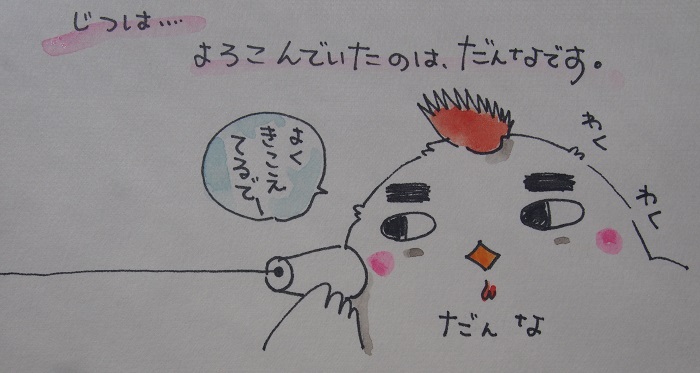 じつは….
よろこんでいたのは、だんなです。
よく
きこえ
てるでー
わく
わく
だんな